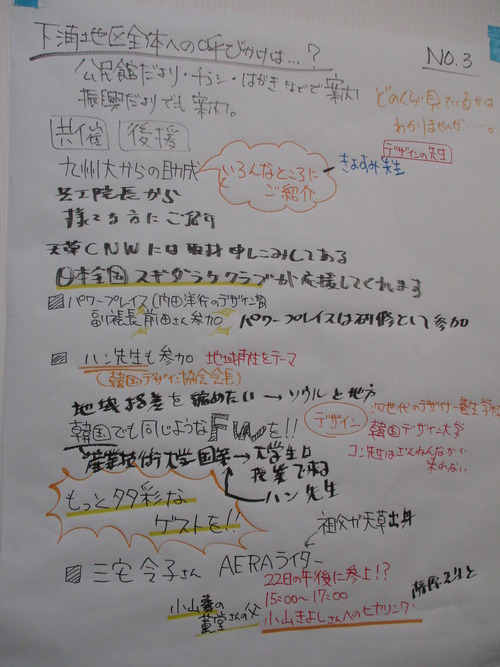 下浦地区全体への呼びかけは…?
NO.3
公民館だより・チラシ・はがきなどで案内
振興だよりでも案内。
どのくらい見ているかは
わかりませんが…。
共催 後援
デザインの先生
九州大からの助成
いろんなところに
ご紹介
きよすみ先生
芸工院長から
様々な方にご紹介
天草CNWには取材申しこみしてある
日本全国スギダラケクラブが応援してくれます
パワープレイス(内田洋行のデザイン部)
副社長前田さん参加
パワープレイスは研修として参加
ハン先生も参加 地域特性をテーマ
(韓国デザイン協会会長)
地域格差を縮めたい→ソウルと地方
韓国でも同じようなFWを!!
デザイン
次世代のデザイナー養生学校
韓国デザイン大学
コン先生はざんねんながら
来れない
産業技術大学国策→大学生は
授業で来る
ハン先生
もっと多彩な
ゲストを!!
祖父が天草出身
三宅令子さん AERAライター
22日の午後に参上!?
15:00〜17:00
小山薫の
薫堂さんの父
小山きよしさんへのヒヤリング
藤原先生と